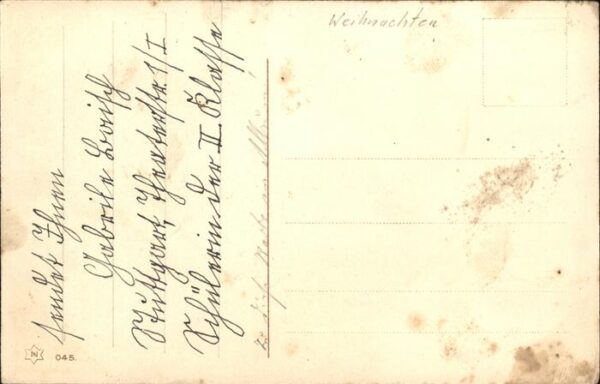 Weihnachten
sendet Ihnen
Gabriele
Stuttgart, Theaterstr. 1/I
Schülerin der II. Klasse
045.